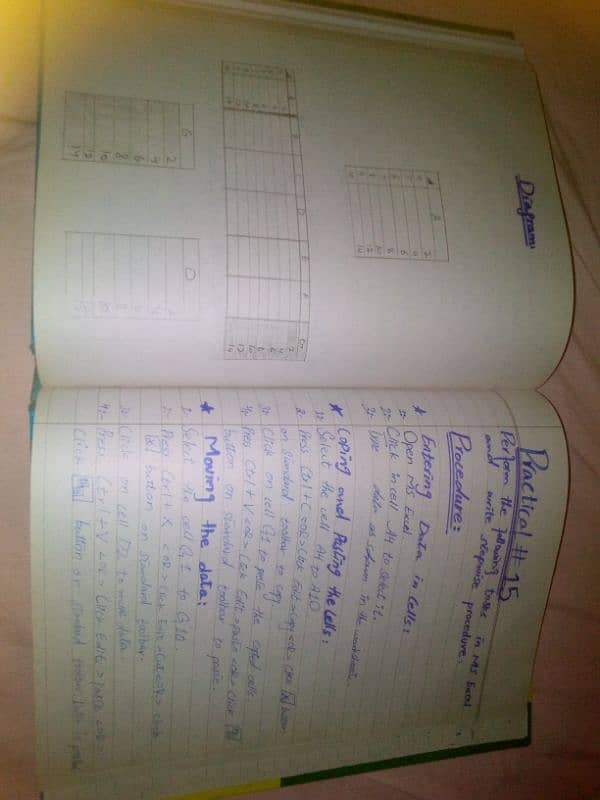 Practical # 15
Perform the following tasks in MS Excel
and write stepwise procedure.
Procedure:
* Entering Data in Cells:
1- Open MS Excel
2- Click in cell A1 to select it.
3- Type data as shown in the worksheet.
* Coping and Pasting the Cells:
1- Select the cell A1 to A10
2- Press Ctrl+C <OR> Click Edit > Copy <OR> Click button
on standard toolbar to copy
3- Click on cell G2 to paste the copied cells.
4- Press Ctrl + V <OR> Click Edit > paste <OR> Click
button on standard toolbar to paste.
* Moving the data:
1- Select the cell G2 to G10.
2- Press Ctrl + X <OR> click Edit > Cut <OR> click
button on standard toolbar.
3- Click on cell D2 to move data.
4- Press Ctrl + V <OR> Click Edit > paste <OR>
Click button on standard toolbar to paste
Diagram:
A
2
4
6
8
10
12
14
A B C D E F G
2
4
6
8
10
12
14
G
2
4
6
8
10
12
14
D